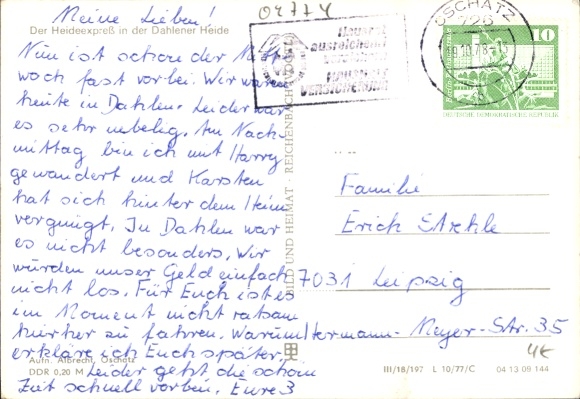 04774
Meine Lieben!
Der Heideexpreß in der Dahlener Heide
Nun ist schon der Mitt-
woch fast vorbei. Wir waren
heute in Dahlen. Leider war
es sehr nebelig. Am Nach-
mittag bin ich mit Harry
gewandert und Karsten
hat sich hinter dem Heim
vergnügt. In Dahlen war
es nicht besonders. Wir
würden unser Geld einfach
nicht los. Für Euch ist es
im Moment nicht ratsam
hierher zu fahren. Warum
erkläre ich Euch später.
Leider geht die schöne
Zeit schnell vorbei. Eure 3
Aufn. Albrecht, Oschatz
DDR 0,20 M
BILD UND HEIMAT · REICHENBACH (VOGTL)
Hausrat
ausreichend
VERSICHERUNG
OSCHATZ
726
10
DEUTSCHE DEMOKRATISCHE REPUBLIK
Familie
Erich Strehle
7031 Leipzig
Meyer-Str. 35
4€
III/18/197 L 10/77/C 04 13 09 144